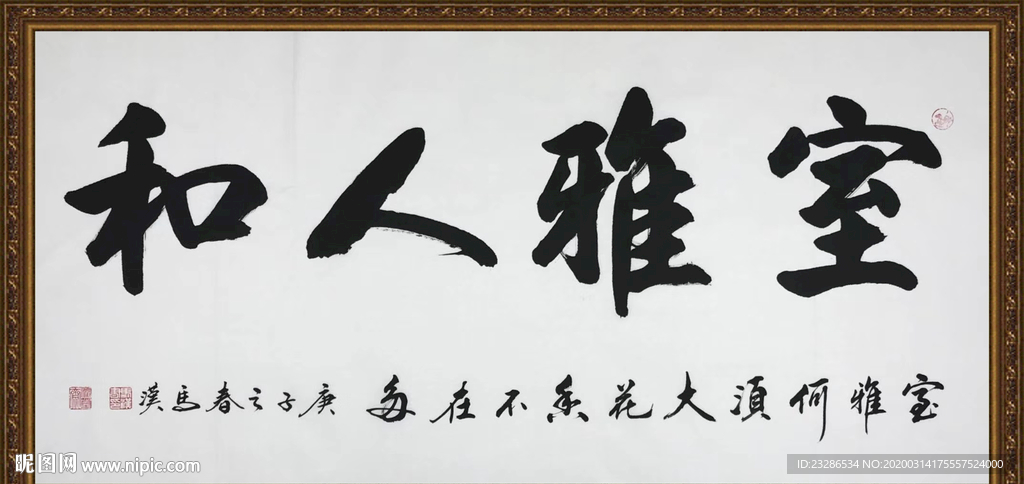 室雅人和
室雅何須大花香不在多 庚子之春馬漢
昵图网 www.nipic.com
ID:23286534 NO:20200314175557524000